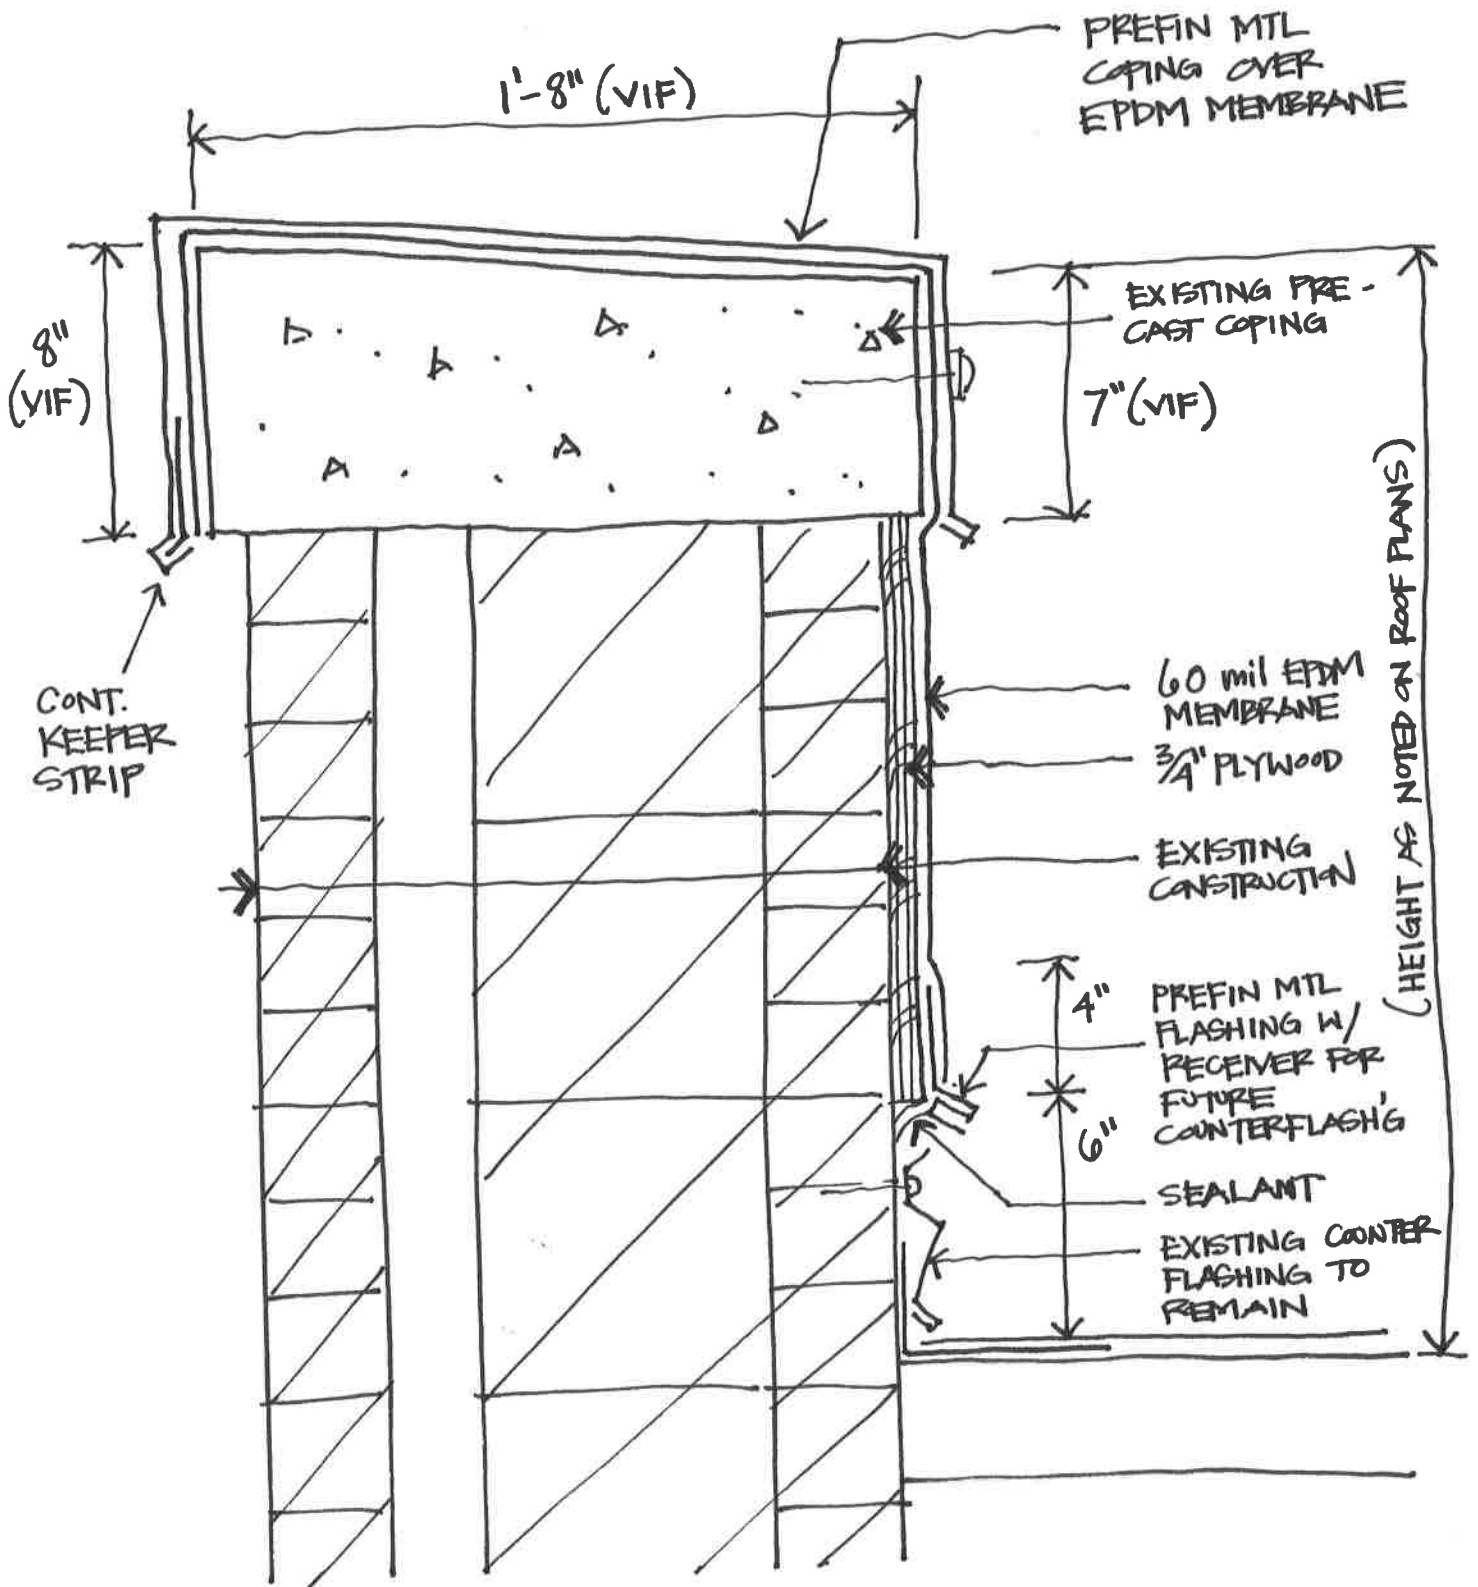 PREFIN MTL
COPING OVER
EPDM MEMBRANE
1'-8" (VIF)
8"
(VIF)
EXISTING PRE-
CAST COPING
7" (VIF)
(HEIGHT AS NOTED ON ROOF PLANS)
CONT.
KEEPER
STRIP
60 mil EPDM
MEMBRANE
3/4" PLYWOOD
EXISTING
CONSTRUCTION
4"
PREFIN MTL
FLASHING W/
RECEIVER FOR
FUTURE
COUNTERFLASH'G
6"
SEALANT
EXISTING COUNTER
FLASHING TO
REMAIN